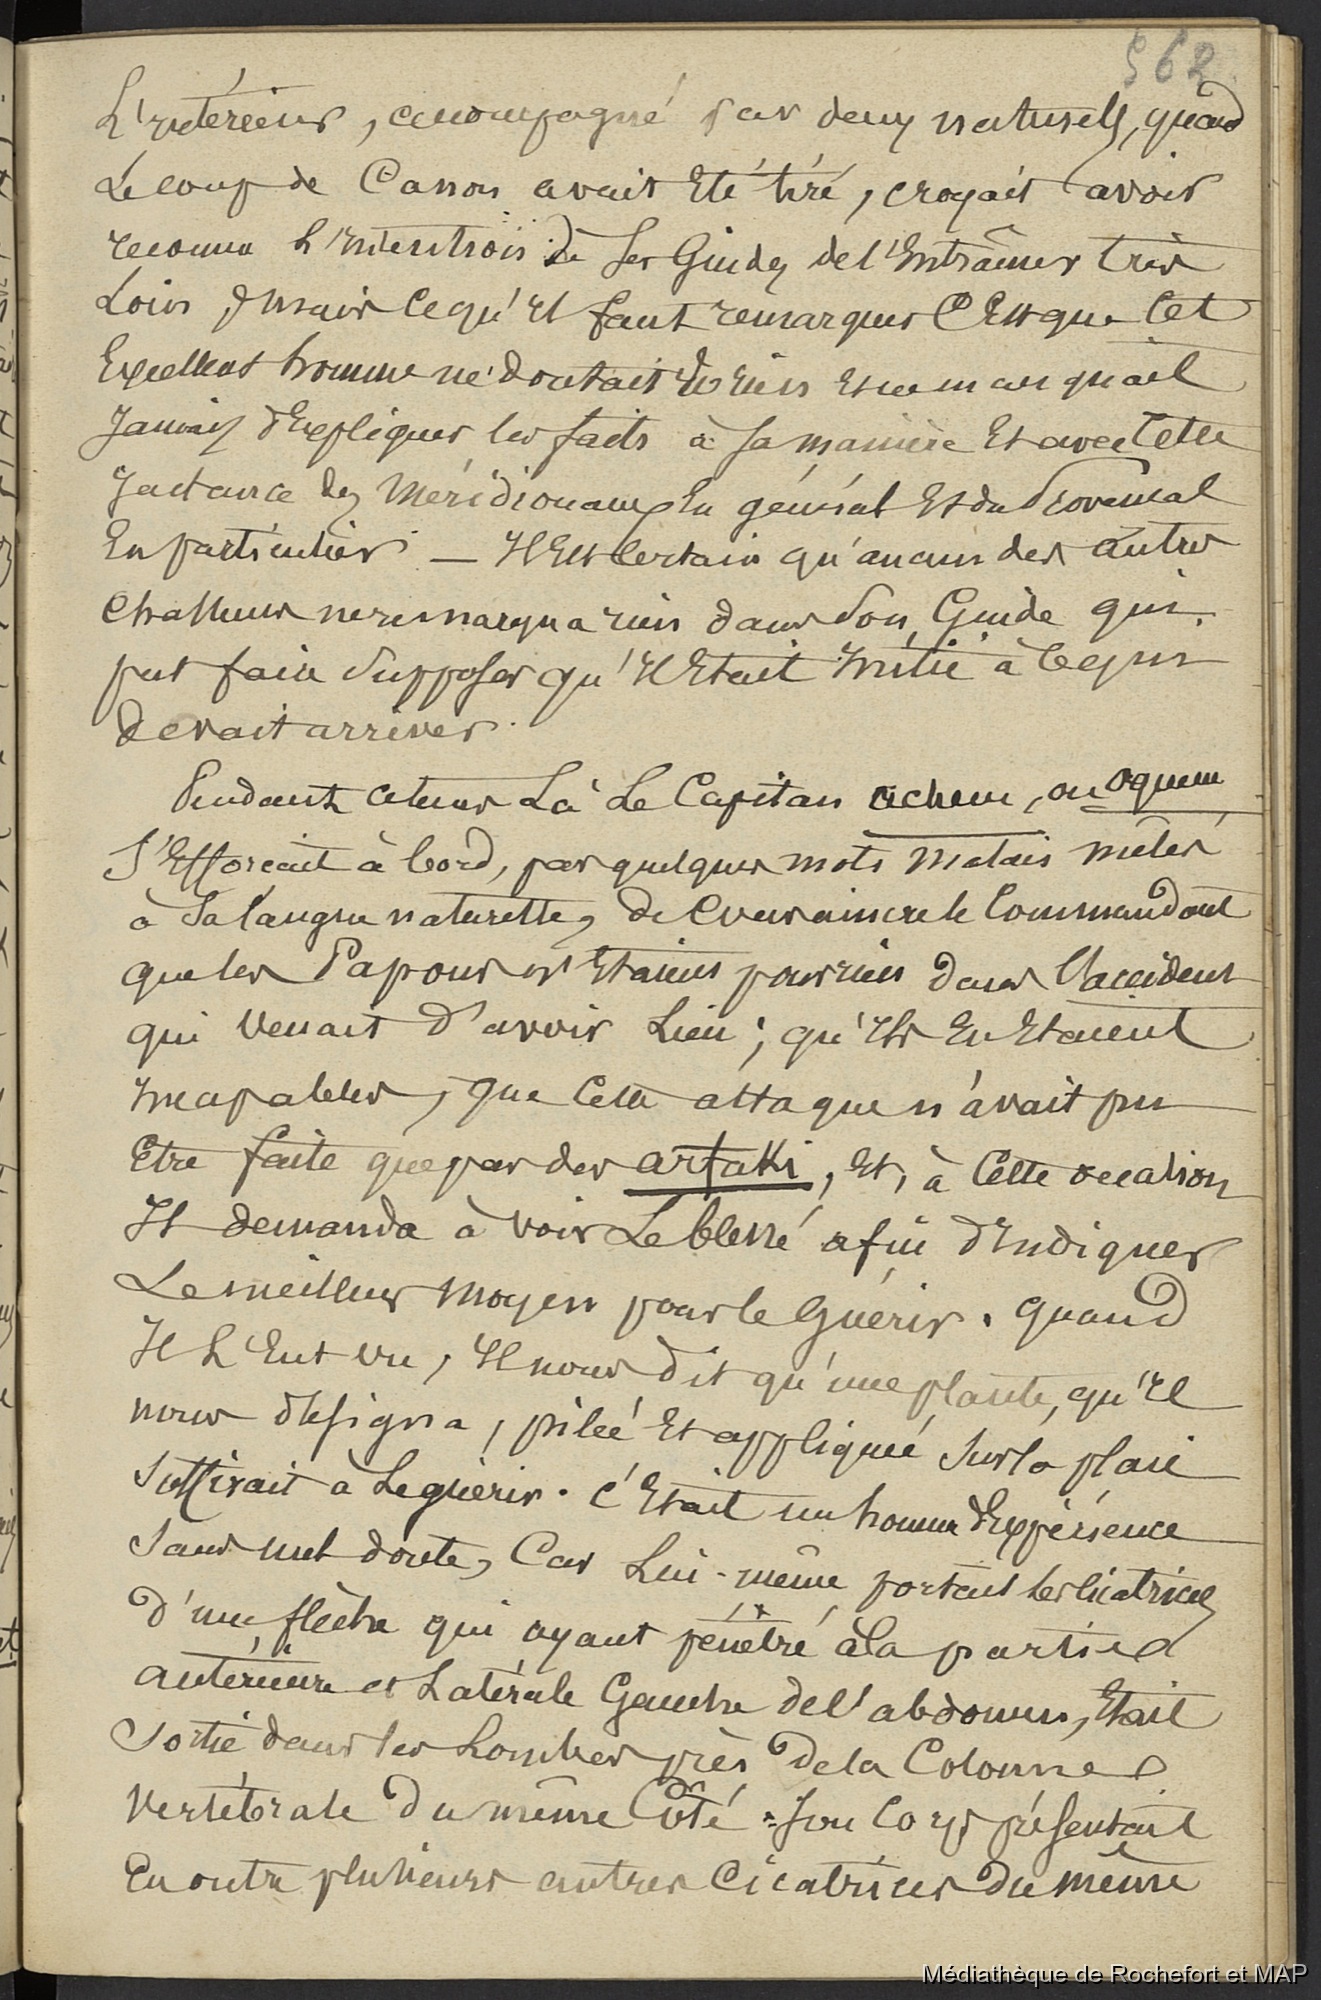 562
L'intérieur, accompagné par deux naturels, quand
Le coup de Canon avait Eté tiré, croyait avoir
reconnu L'Intention de Ses Guides de l'Entraîner très
Loin, mais ce qu'Il faut remarquer C'Est que Cet
Excellent homme ne doutait de rien Et ne manquait
Jamais d'Expliquer les faits à Sa manière Et avec Cette
Jactance des Méridionaux En général Et du Provençal
En particulier — Il Est Certain qu'aucun des autres
Chasseurs ne remarqua rien dans Son Guide qui
put faire Supposer qu'Il Etait Initié à Ce qui
devait arriver.
Pendant ce tems Là Le Capitan achem, ou oquem
S'Efforçait à bord, par quelques mots Malais mêlés
à Sa langue naturelle, de Convaincre le Commandant
que les Papous n'Etaient pour rien dans L'accident
qui Venait d'avoir Lieu ; qu'Ils En Etaient
Incapables, que Cette attaque n'avait pu
Etre faite que par des arfaki, Et, à Cette occasion
Il demanda à voir Le blessé afin d'Indiquer
Le meilleur moyen pour le Guérir. Quand
Il L'Eut vu, Il nous dit qu'une plante, qu'Il
nous désigna, pilée Et appliquée Sur la plaie
Suffirait à Le guérir. C'Etait un homme d'Expérience
Sans nul doute, Car Lui-même portait les Cicatrices
d'une flèche qui ayant pénétré à la partie
antérieure et Latérale Gauche de l'abdomen, Etait
Sortie dans les Lombes près de la Colonne
Vertébrale du même Côté. Son Corps présentait
En outre plusieurs autres Cicatrices du même
Médiathèque de Rochefort et MAP